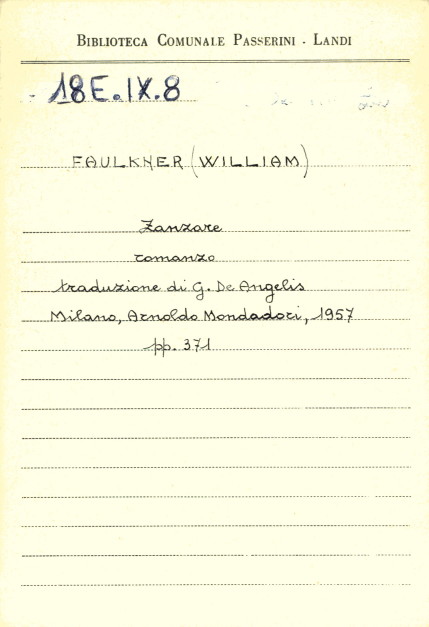 BIBLIOTECA COMUNALE PASSERINI - LANDI
18E.IX.8
FAULKNER (WILLIAM)
Zanzare
romanzo
traduzione di G. De Angelis
Milano, Arnoldo Mondadori, 1957
pp. 371